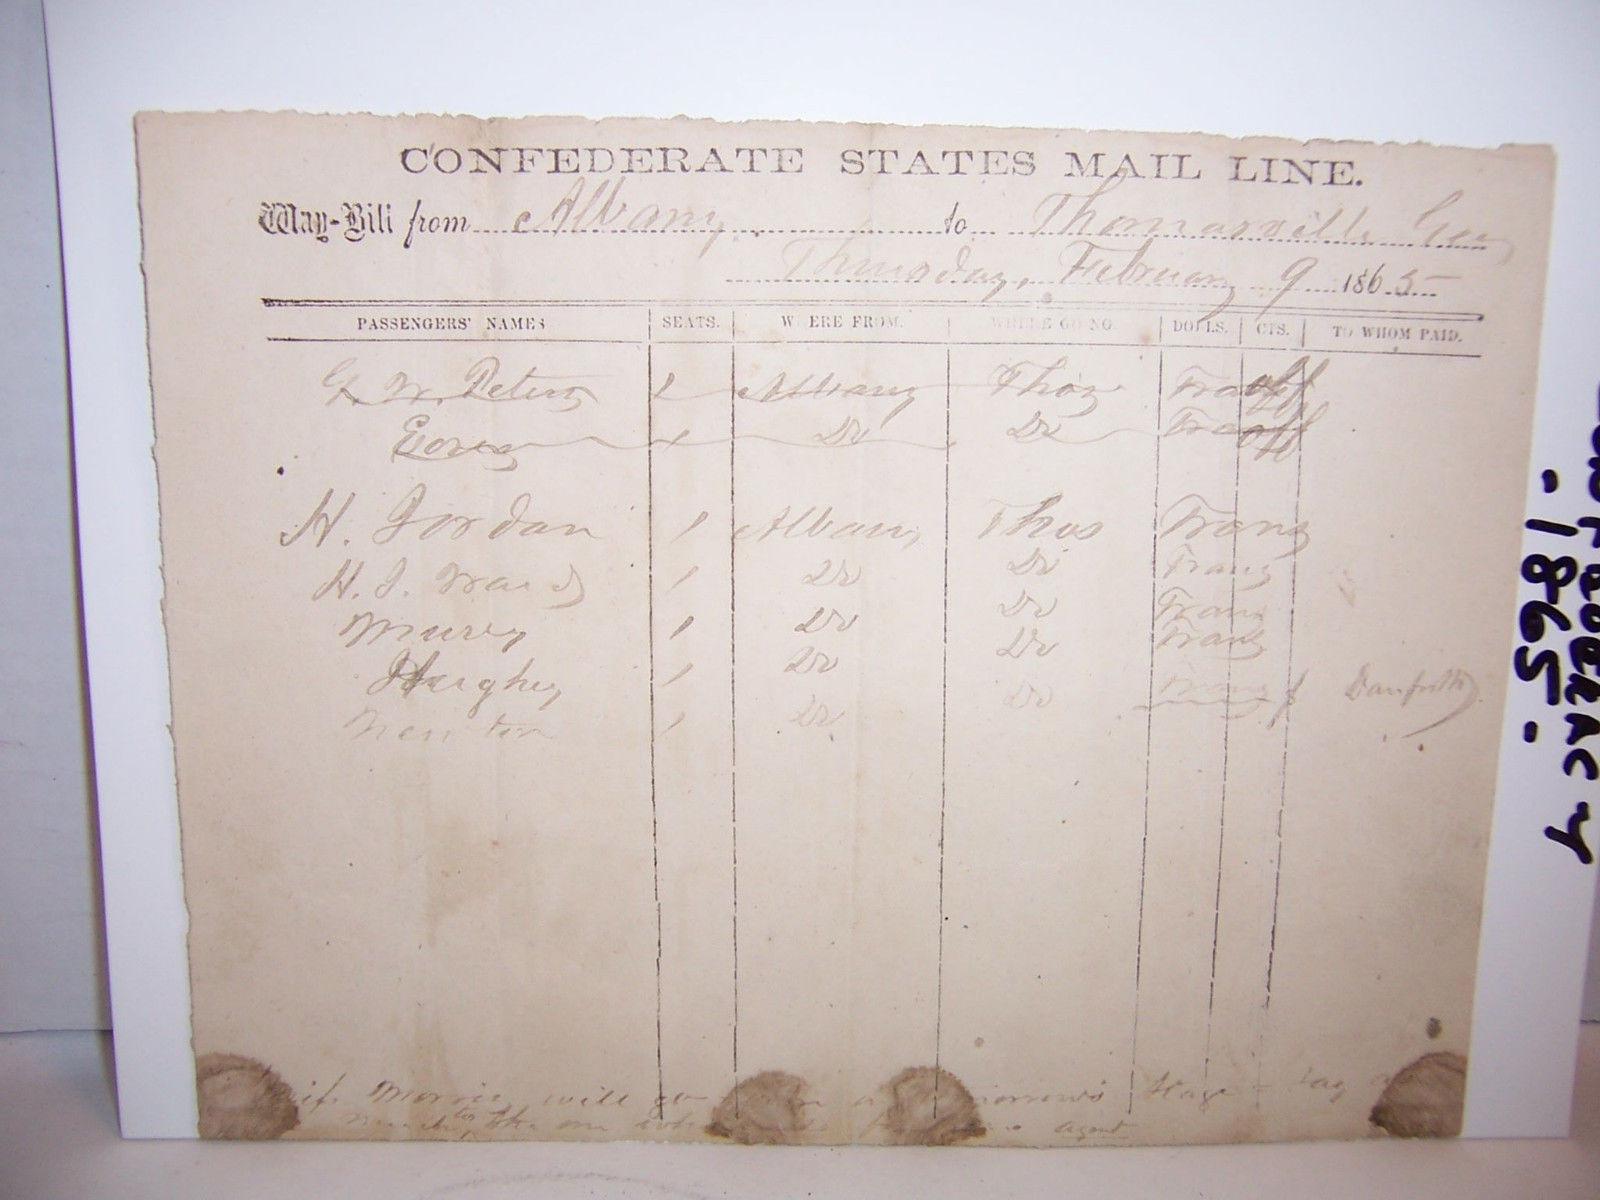 CONFEDERATE STATES MAIL LINE.
Way-Bill from Albany to Thomasville Geo
Thursday, February 9 1865
PASSENGERS' NAMES SEATS. WHERE FROM. WHERE GOING. DOLLS. CTS. TO WHOM PAID.
G. W. Peters 1 Albany Thos Trans off
Do Do Trans off
H. Jordan 1 Albany Thos Trans
H. J. Ward 1 Do Do Trans
1 Do Do Trans
Hughes 1 Do Do Trans
Newton 1 Do Do Trans Danforth
Morris will go morrow's Stage
the one agent
CONFEDERACY
. 1865 .